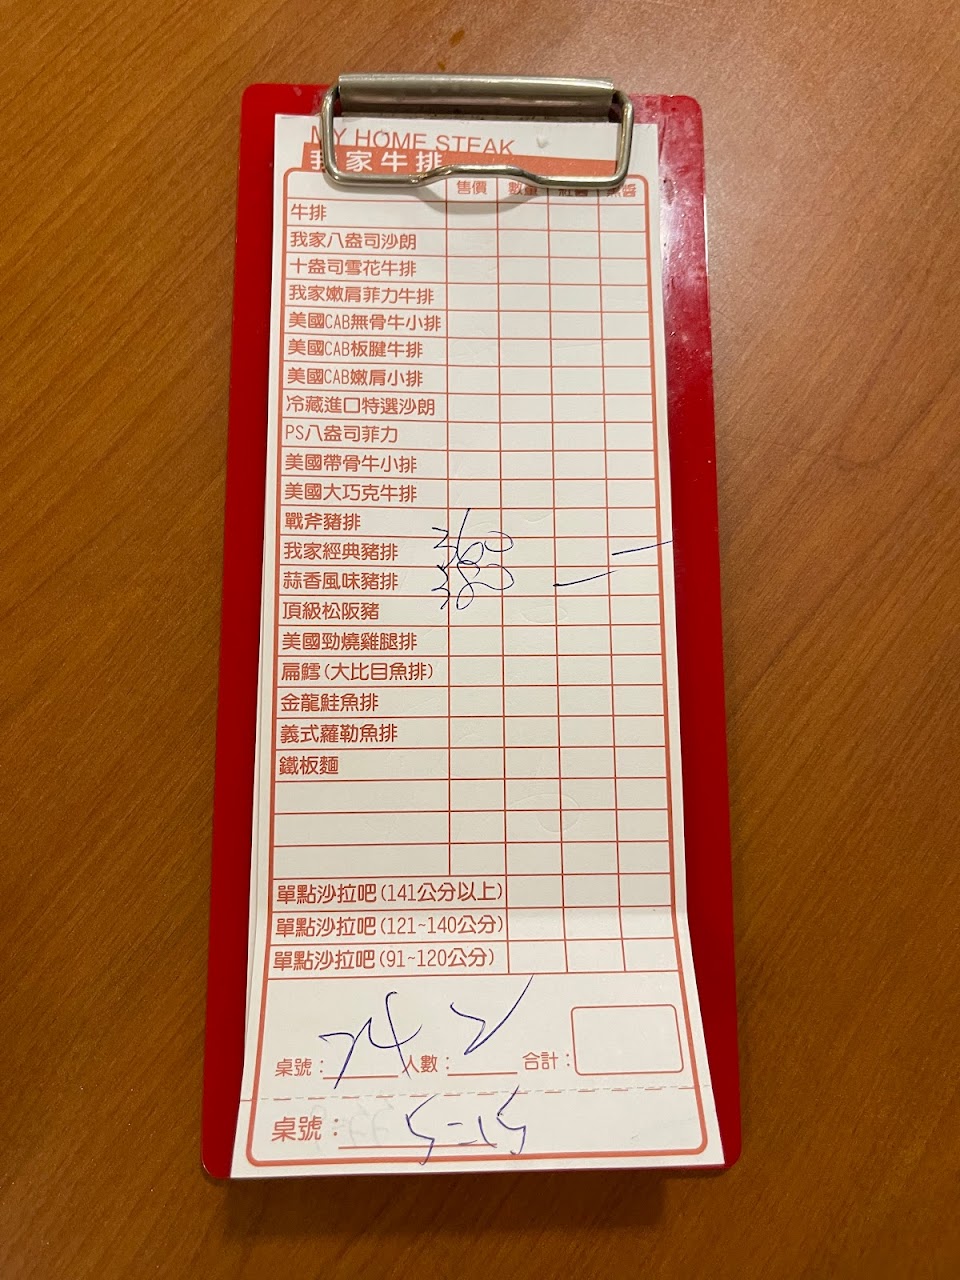 MY HOME STEAK
我家牛排
售價 數量 紅醬 黑醬
牛排
我家八盎司沙朗
十盎司雪花牛排
我家嫩肩菲力牛排
美國CAB無骨牛小排
美國CAB板腱牛排
美國CAB嫩肩小排
冷藏進口特選沙朗
PS八盎司菲力
美國帶骨牛小排
美國大巧克牛排
戰斧豬排
我家經典豬排 360 一
蒜香風味豬排 380 一
頂級松阪豬
美國勁燒雞腿排
扁鱈(大比目魚排)
金龍鮭魚排
義式蘿勒魚排
鐵板麵
單點沙拉吧(141公分以上)
單點沙拉吧(121~140公分)
單點沙拉吧(91~120公分)
桌號：74 人數：2 合計：
桌號： 5=15